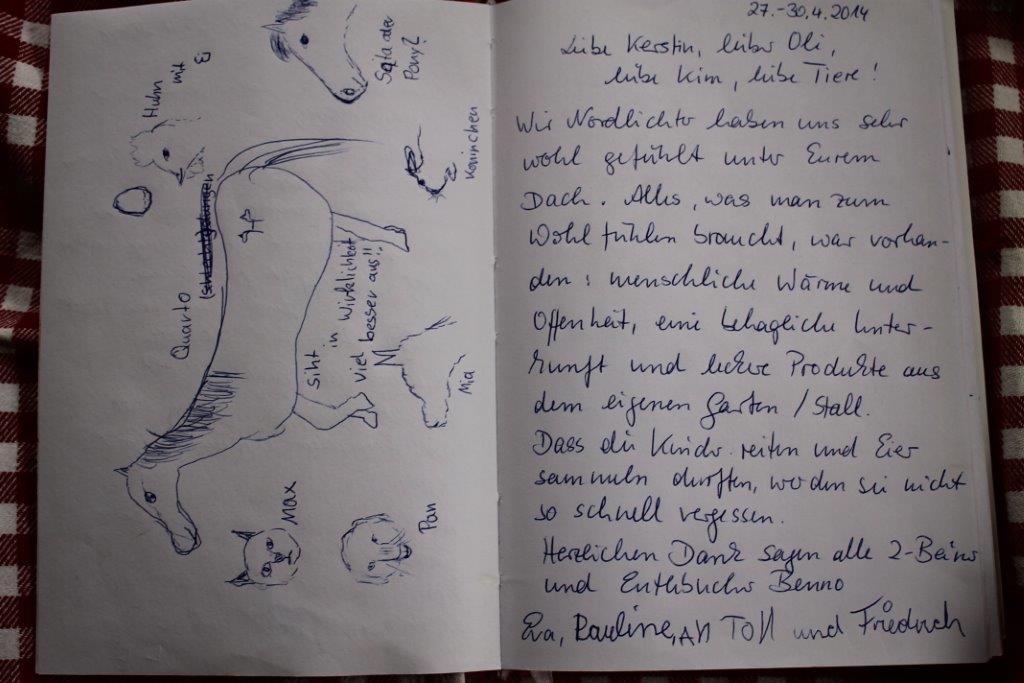 Huhn
mit
Ei
Sqta oder
Pony?
Quarto
Koninchen
siht
in Wirklichkeit
viel besser aus!!
Mia
Max
Pan
27.-30.4.2014
Liebe Kerstin, lieber Oli,
liebe Kim, liebe Tiere!
Wir Nordlichter haben uns sehr
wohl gefühlt unter Eurem
Dach. Alles, was man zum
Wohlfühlen braucht, war vorhan-
den: menschliche Wärme und
Offenheit, eine behagliche Unter-
kunft und leckere Produkte aus
dem eigenen Garten/Stall.
Dass die Kinder reiten und Eier
sammeln durften, werden sie nicht
so schnell vergessen.
Herzlichen Dank sagen alle 2-Beiner
und Entlebucher Benno
Eva, Pauline, und Friederich